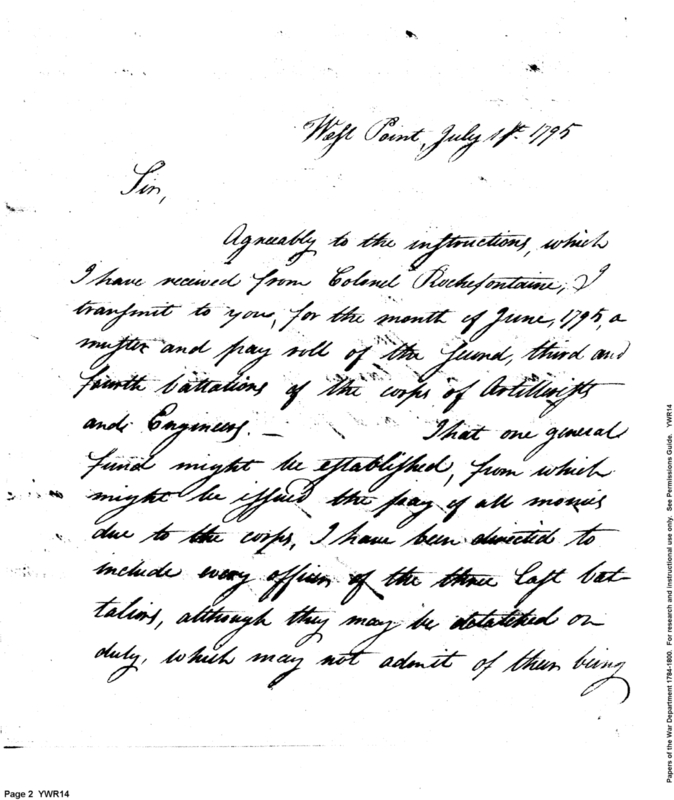 West Point, July 1st. 1795
Sir,
Agreeably to the instructions, which
I have received from Colonel Rochefontaine, I
transmit to you, for the month of June, 1795, a
muster and pay roll of the second, third and
fourth battalions of the corps of Artillerists
and Engineers. — That one general
fund might be established, from which
might be issued the pay of all monies
due to the corps, I have been directed to
include every officer of the three last bat-
talions, although they may be detatched on
duty, which may not admit of their being
Papers of the War Department 1784-1800. For research and instructional use only. See Permissions Guide. YWR14
Page 2 YWR14